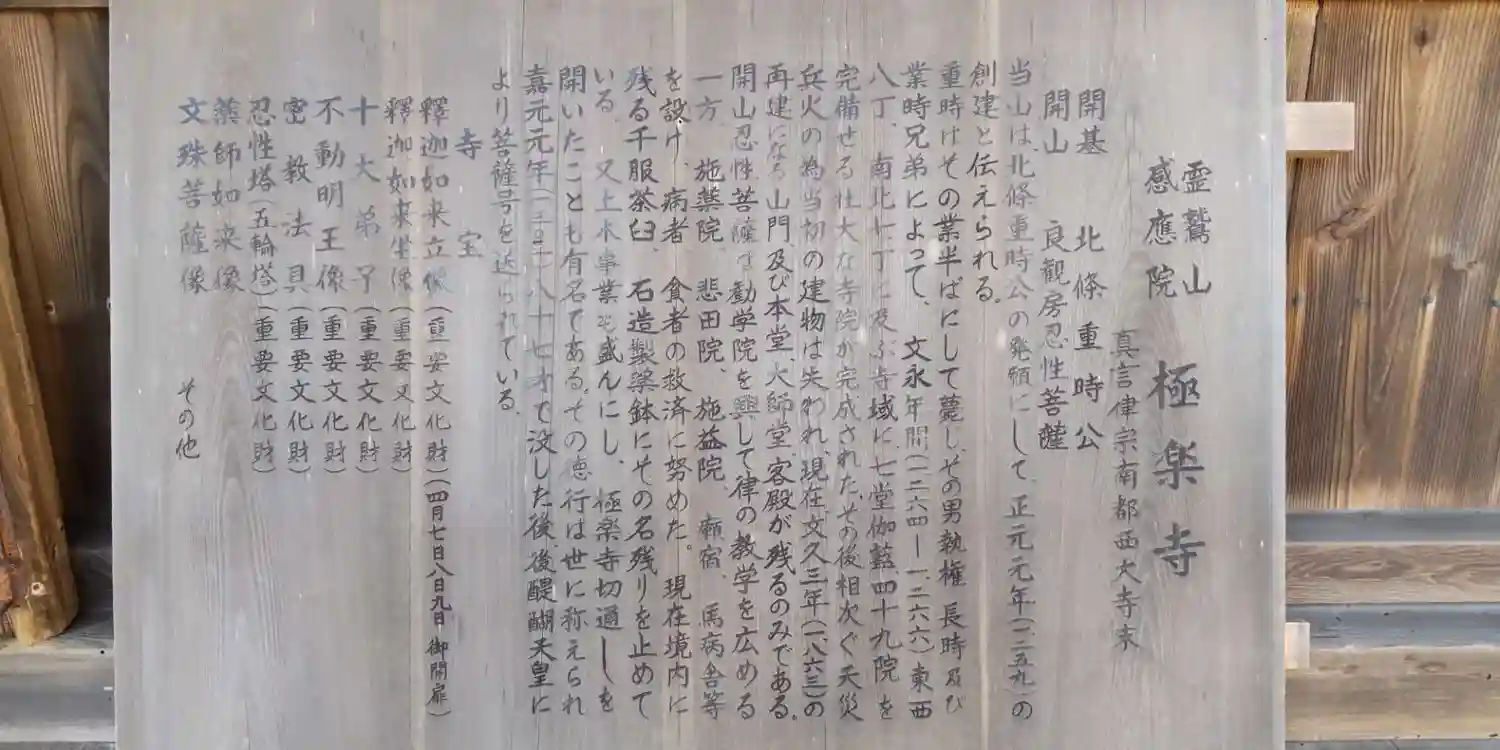 霊鷲山
感應院 極楽寺
真言律宗南都西大寺末
開基 北條重時公
開山 良観房忍性菩薩
当山は、北條重時公の発願にして、正元元年(一二五九)の
創建と伝えられる。
重時はその業半ばにして薨し、その男執権 長時及び
業時兄弟によって、文永年間(一二六四—一二六六)東西
八丁、南北七丁に及ぶ寺域に七堂伽藍四十九院を
完備せる壮大な寺院が完成された。その後相次ぐ天災
兵火の為当初の建物は失われ、現在文久三年(一八六三)の
再建になる山門及び本堂、大師堂、客殿が残るのみである。
開山忍性菩薩は勧学院を興して律の教学を広める
一方、施薬院、悲田院、施益院、癩宿、馬病舎等
を設け、病者、貧者の救済に努めた。現在境内に
残る千服茶臼、石造製薬鉢にその名残りを止めて
いる。又土木事業も盛んにし、極楽寺切通しを
開いたことも有名である。その徳行は世に称えられ
嘉元元年 八十七才で没した後、後醍醐天皇に
より菩薩号を送られている。
寺宝
釋迦如来立像(重要文化財)(四月七日八日九日 御開扉)
釋迦如来坐像(重要文化財)
十大弟子(重要文化財)
不動明王像(重要文化財)
密教法具(重要文化財)
忍性塔(五輪塔)(重要文化財)
薬師如来像
文殊菩薩像 その他